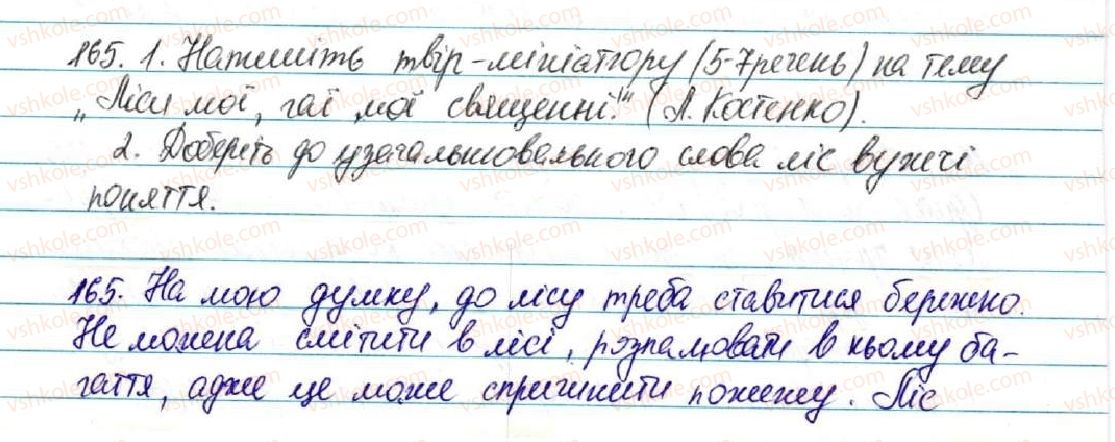 165. 1. Напишіть твір-мініатюру (5-7 речень) на тему
„Ліси мої, гаї мої священні!" (Л. Костенко).
2. Доберіть до узагальнювального слова ліс вужчі
поняття.
165. На мою думку, до лісу треба ставитися бережно.
Не можна смітити в лісі, розпалювати в ньому ба-
гаття, адже це може спричинити пожежу. Ліс